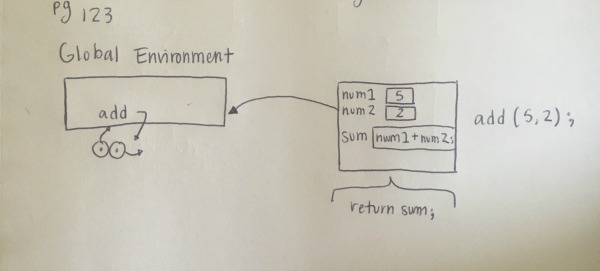 pg 123
Global Environment
add
num1 5
num2 2
sum num1+num2;
add (5,2);
return sum;